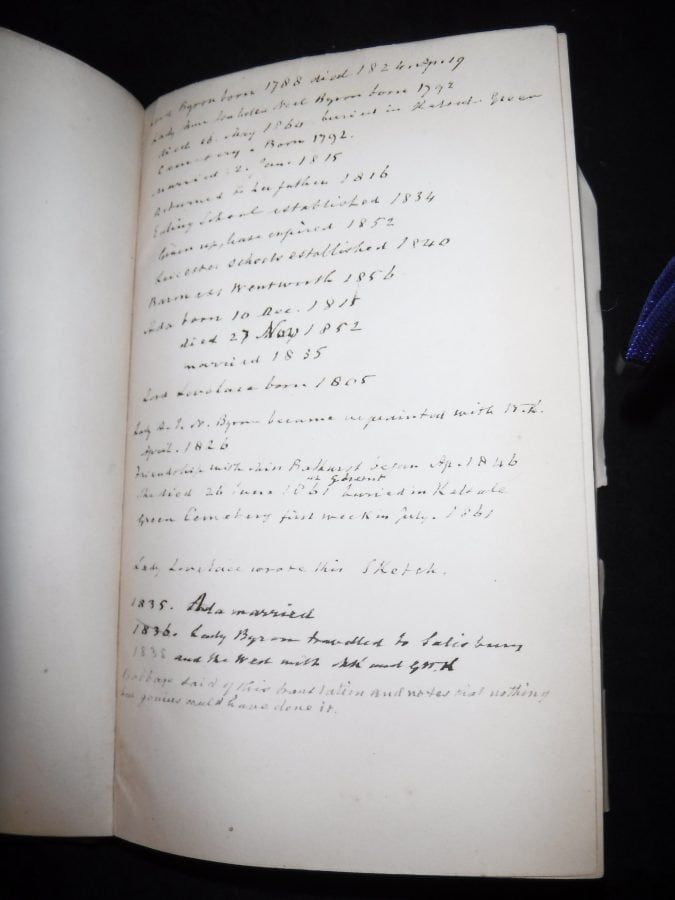 Lord Byron born 1788 died 1824. Ap. 19
Lady Ann Isabella Noel Byron born 1792
died 16. May 1860 buried in Kensal Green
Cemetery. Born 1792.
married. 2. Jan. 1815
Returned to her father 1816
Ealing School established 1834
Given up, lease expired 1852
Leicester schools established 1840
Baroness Wentworth 1856
Ada born 10 Dec. 1815
died 27 Nov 1852
married 1835
Lord Lovelace born 1805
Lady A. I. N. Byron became acquainted with
April. 1826
Friendship with Miss Bathurst began Ap. 1846
She died 26 June 1861 buried in Kensale
Green Cemetery first week in July. 1861
Lady Lovelace wrote this Sketch.
1835. Ada married
1836. Lady Byron travelled to Salisbury
1835 and the West with and
Babbage said of this translation and notes that nothing
but genius could have done it.